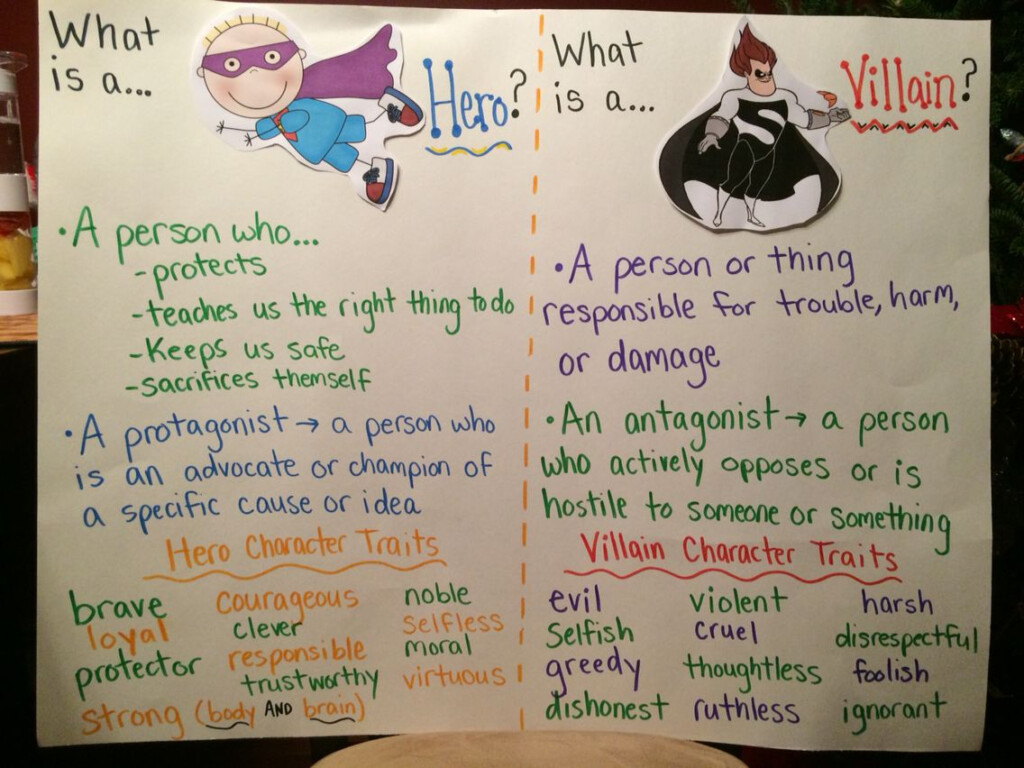 What
is a...
Hero?
• A person who...
- protects
- teaches us the right thing to do
- Keeps us safe
- sacrifices themself
• A protagonist → a person who
is an advocate or champion of
a specific cause or idea
Hero Character Traits
brave courageous noble
loyal clever selfless
protector responsible moral
trustworthy virtuous
strong (body AND brain)
What
is a...
Villain?
S
• A person or thing
responsible for trouble, harm,
or damage
• An antagonist → a person
who actively opposes or is
hostile to someone or something
Villain Character Traits
evil violent harsh
selfish cruel disrespectful
greedy thoughtless foolish
dishonest ruthless ignorant